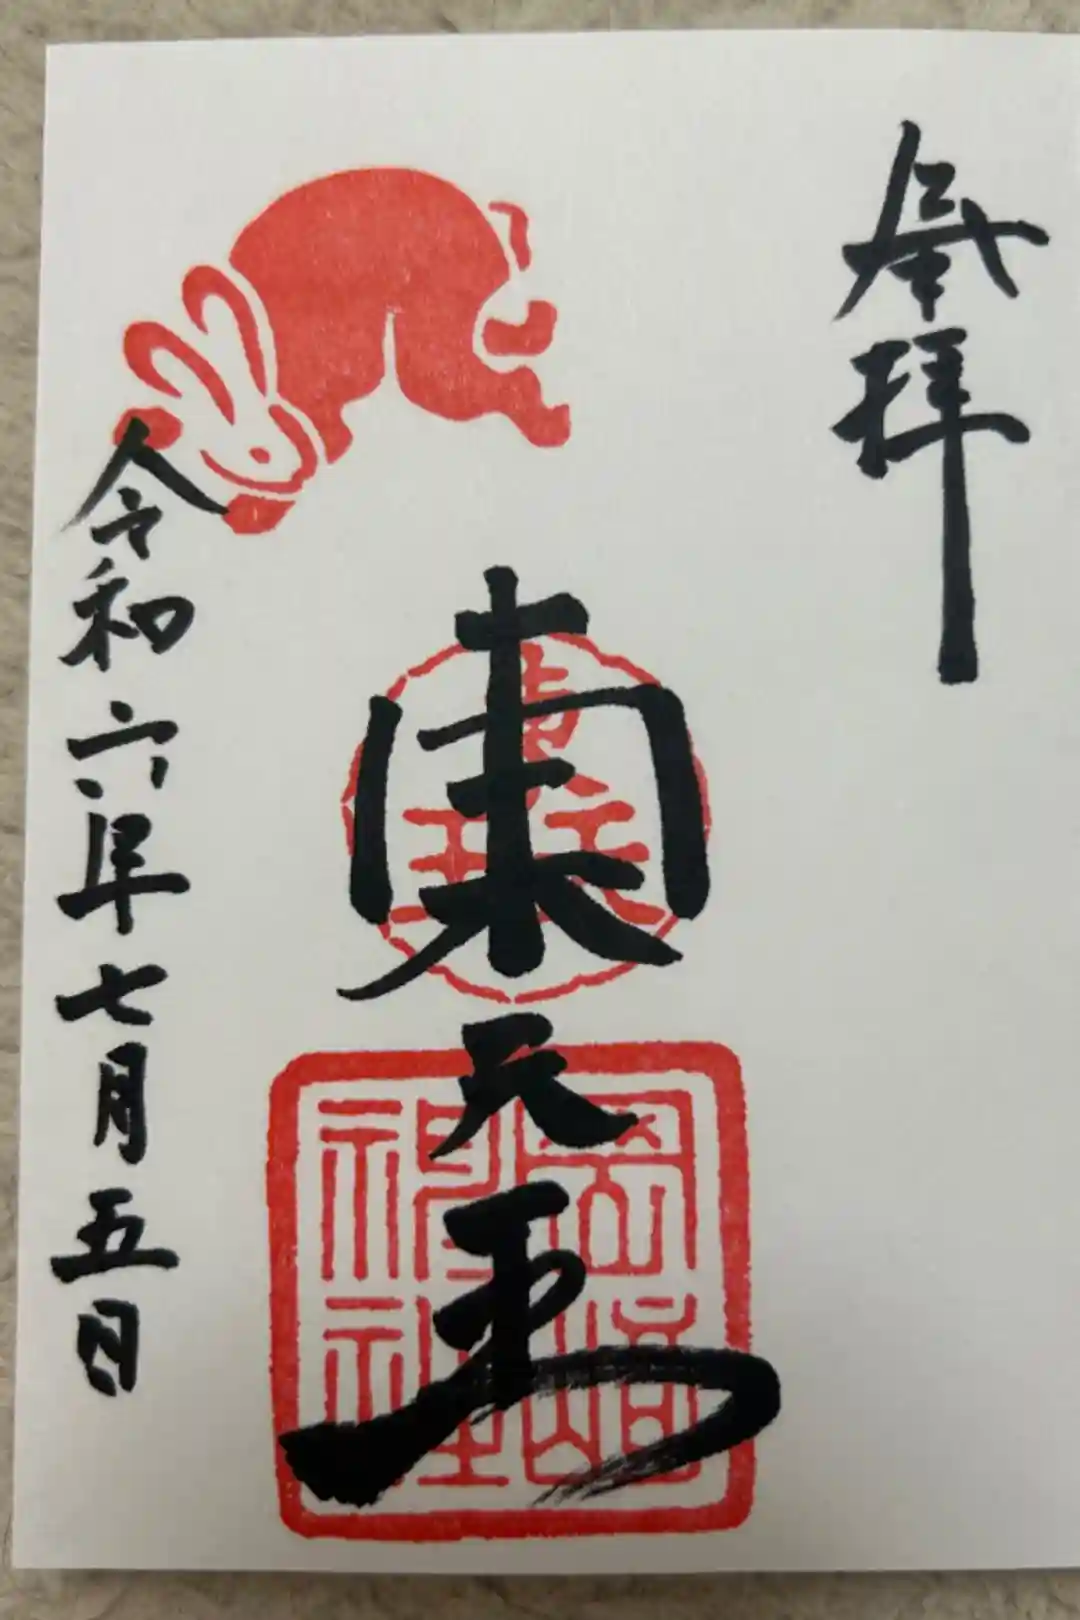 奉拝
東天王
岡崎神社
令和六年七月五日